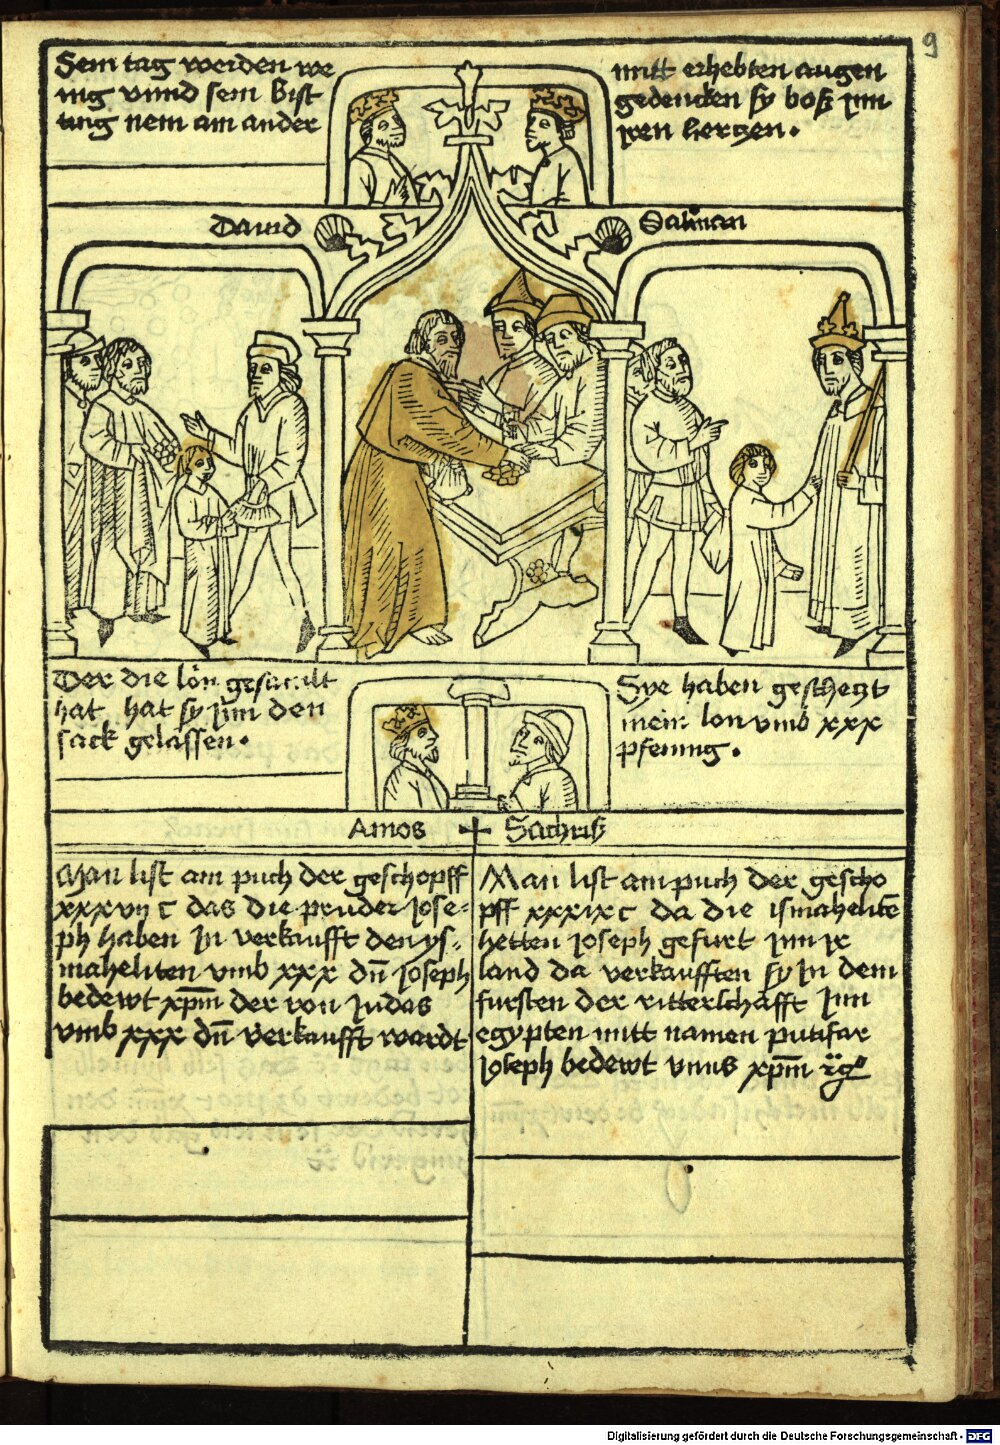 9
Sein tag werden we
nig vnnd sein Bist
tung nem ain ander
mitt erhebten augen
gedencken sy boß jnn
jren hertzen.
Dauid
Salman
Der die lon gesamlt
hat hat sy jnn den
sack gelassen.
Sye haben geschetzt
mein lon vmb xxx
pfening.
Amos
Sachriß
Man list am puch der geschopff
xxxvij c das die pruder Jose-
ph haben jn verkaufft den ys-
maheliten vmb xxx dn̄ Joseph
bedewt xp̄m der von Judas
vmb xxx dn̄ verkaufft wardt
Man list am puch der gescho
pff xxxix c da die ismahelite
hetten Joseph gefurt jnn jr
land da verkaufften sy jn dem
fursten der ritterschafft jnn
egypten mitt namen putifar
Joseph bedewt vnns xp̄m
Digitalisierung gefördert durch die Deutsche Forschungsgemeinschaft - DFG